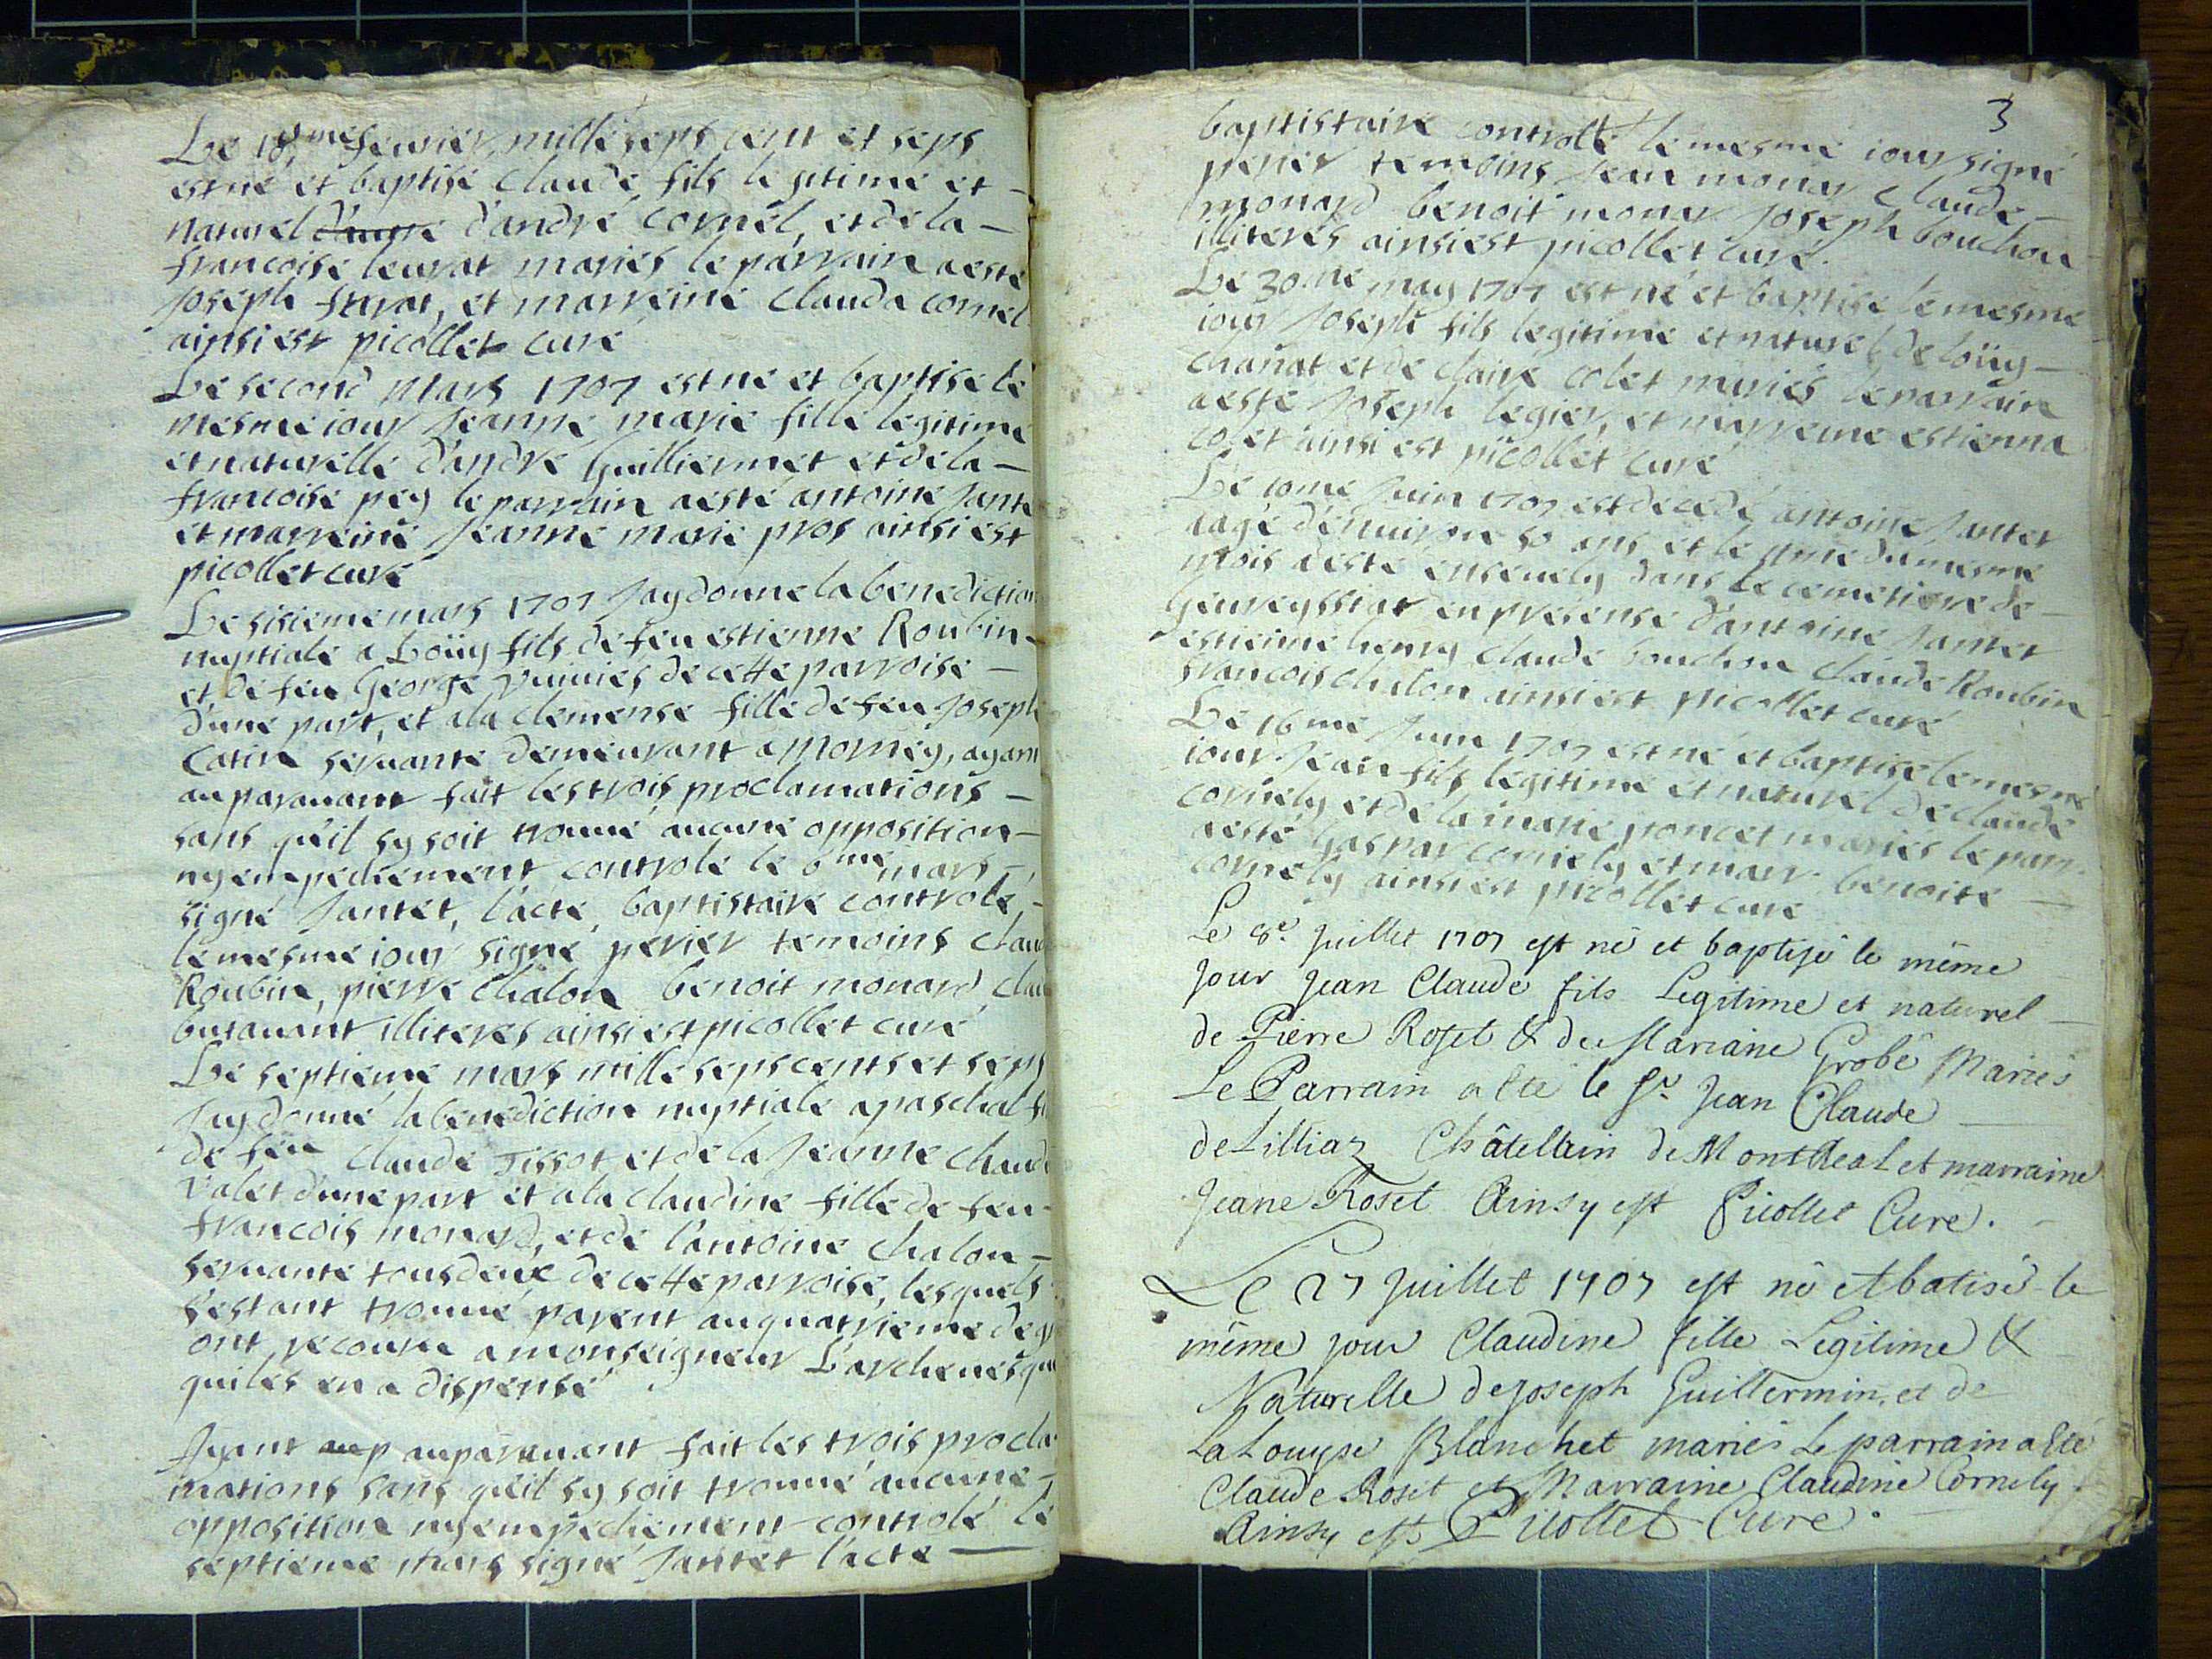 Le 18.me feurier mille seps cent et seps
est né et baptisé claude fils legitime et
naturel d'andré cornel, et de la
francoise leurat mariés le parrain a esté
Joseph furat, et marreine clauda cornel
ainsi est picollet curé
Le second Mars 1707 est né et baptise le
mesme iour Jeanne marie fille legitime
et naturelle d'andre Guilliermet et de la
francoise pey le parrain a esté antoine Jante
et marreine Jeanne marie pros ainsi est
picollet curé
Le sisieme mars 1707 Jay donne la benediction
nuptiale a Loüy fils de feu estienne Roubin
et de feu George vuiries de cette parroise
d'une part, et a la clemense fille de feu Joseph
Catin seruante demeurant a Mornéy, ayant
au parauant fait les trois proclamations
sans qu'il sy soit trouué aucune opposition
ny empechement controle le 6me mars
signé Jantet, l'acte baptistaire controlé,
le mesme iour signé perier temoins claud
Roubin, pierre chalon benoit monard clau
buravant illiteres ainsi est picollet curé
Le septieme mars mille seps cents et seps
Jay donné la benediction nuptiale a paschal fi
de feu claude Tissot et de la Jeanne claud
valet d'une part et a la claudine fille de feu
francois monard, et de l'antoine chalon
seruante tous deux de cette parroise, lesquels
s'estant trouué parent au quatrieme deg
ont recouru a monseigneur L'archeuesque
qui les en a dispensé
Ayant aup auparauant fait les trois procla
mations sans qu'il sy soit trouué aucune
opposition ny empechement controlé le
septieme mars signé Jantet l'acte
3
baptistaire controlé le mesme iour signé
perier temoins Jean monar claude
monard benoit monar Joseph bouchon
illiterés ainsi est picollet curé.
Le 30.me may 1707 est né et baptise le mesme
iour Joseph fils legitime et naturel de Loüy
chanat et de claire colet mariés le parrain
a esté Joseph legier, et marreine estienna
colet ainsi est picollet curé
Le 10me Juin 1707 est decedé antoine Jantet
aagé d'enuiron 50 ans et le 11me du mesme
mois a esté enseuely dans le cemetiere de
Geureyssiat en presense d'antoine Jantet
estienne henry claude bouchon claude Roubin
francois chalon ainsi est picollet curé
Le 16me Juin 1707 est né et baptise le mesme
iour Jean fils legitime et naturel de claude
cornely et de la marie poncet mariés le parr.
a esté Gaspar cornely et marr. benoite
cornely ainsi est picollet curé
Le 8.e Juillet 1707 est né et baptisé le même
jour Jean Claude fils Legitime et naturel
de Pierre Roset & de Mariane Grobé Mariés
Le Parrain a Eté le Sr. Jean Claude
de Lilliaz Châtellain de Montréal et marraine
Jeane Roset Ainsy est Picollet Curé.
Le 27 Juillet 1707 est né et batisé le
même jour Claudine fille Legitime &
Naturelle de Joseph Guillermin, et de
La Louyse Blanchet mariés Le parrain a Eté
Claude Roset et Marraine Claudine Cornely.
Ainsy est Picollet Curé.